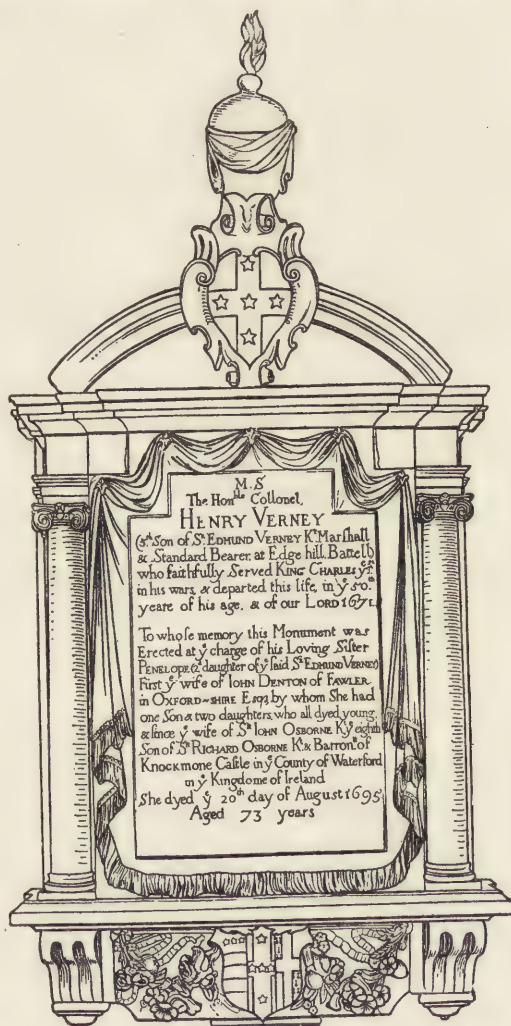 M.S
The Honble Collonel,
HENRY VERNEY
(5th Son of Sr EDMUND VERNEY Kt Marſhall
& Standard Bearer, at Edge hill, Battell)
who faithfully Served KING CHARLES ye
in his wars, & departed this life, in ye 50th
yeare of his age, & of our LORD 1671.
To whoſe memory this Monument was
Erected at ye charge of his Loving Siſter
PENELOPE (2d daughter of ye ſaid Sr EDMUND VERNEY)
Firſt ye wife of IOHN DENTON of FAWLER
in OXFORD~SHIRE Esqs, by whom She had
one Son & two daughters, who all dyed young,
& ſince ye wife of Sr IOHN OSBORNE Kt ye eighth
Son of Sr RICHARD OSBORNE Kt & Barront of
KNOCKMONE Caſtle in ye County of Waterford
in ye Kingdome of Ireland
She dyed ye 20th day of August 1695
Aged 73 years